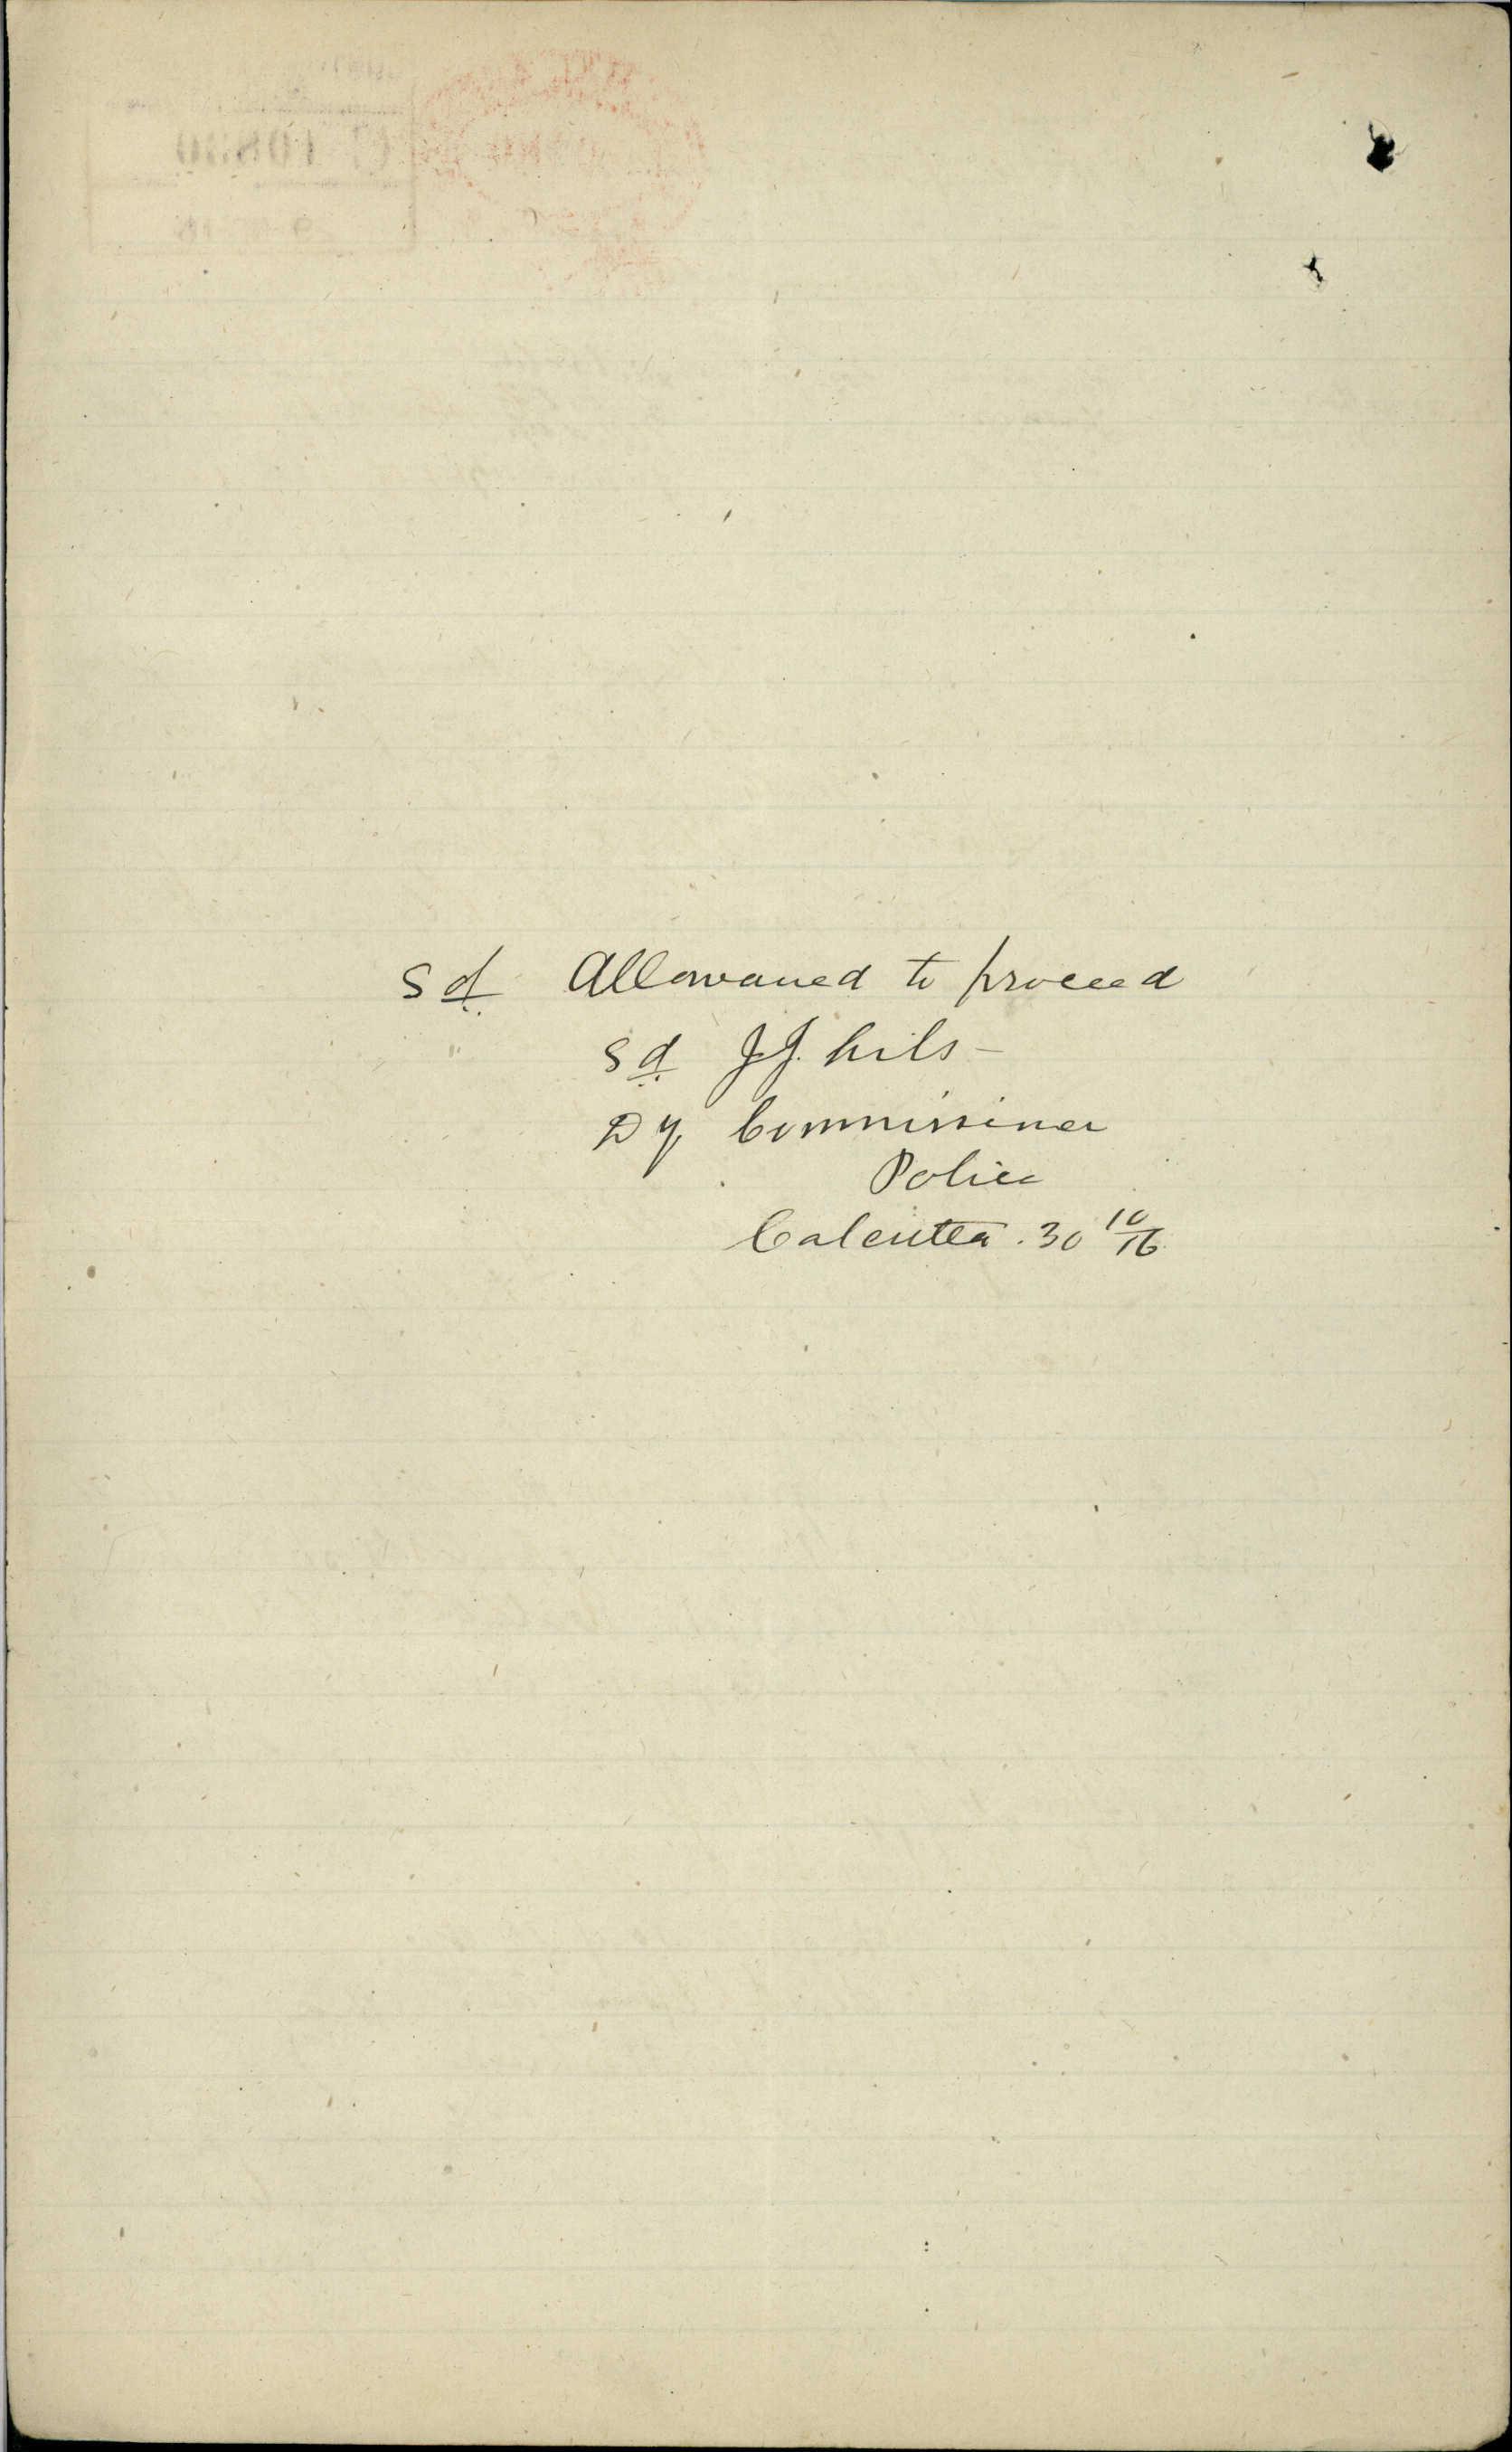 Sd. Allowaned to proceed
Sd. J.J. hils -
Dy Commissiner
Police
Calcutta. 30 10/16.